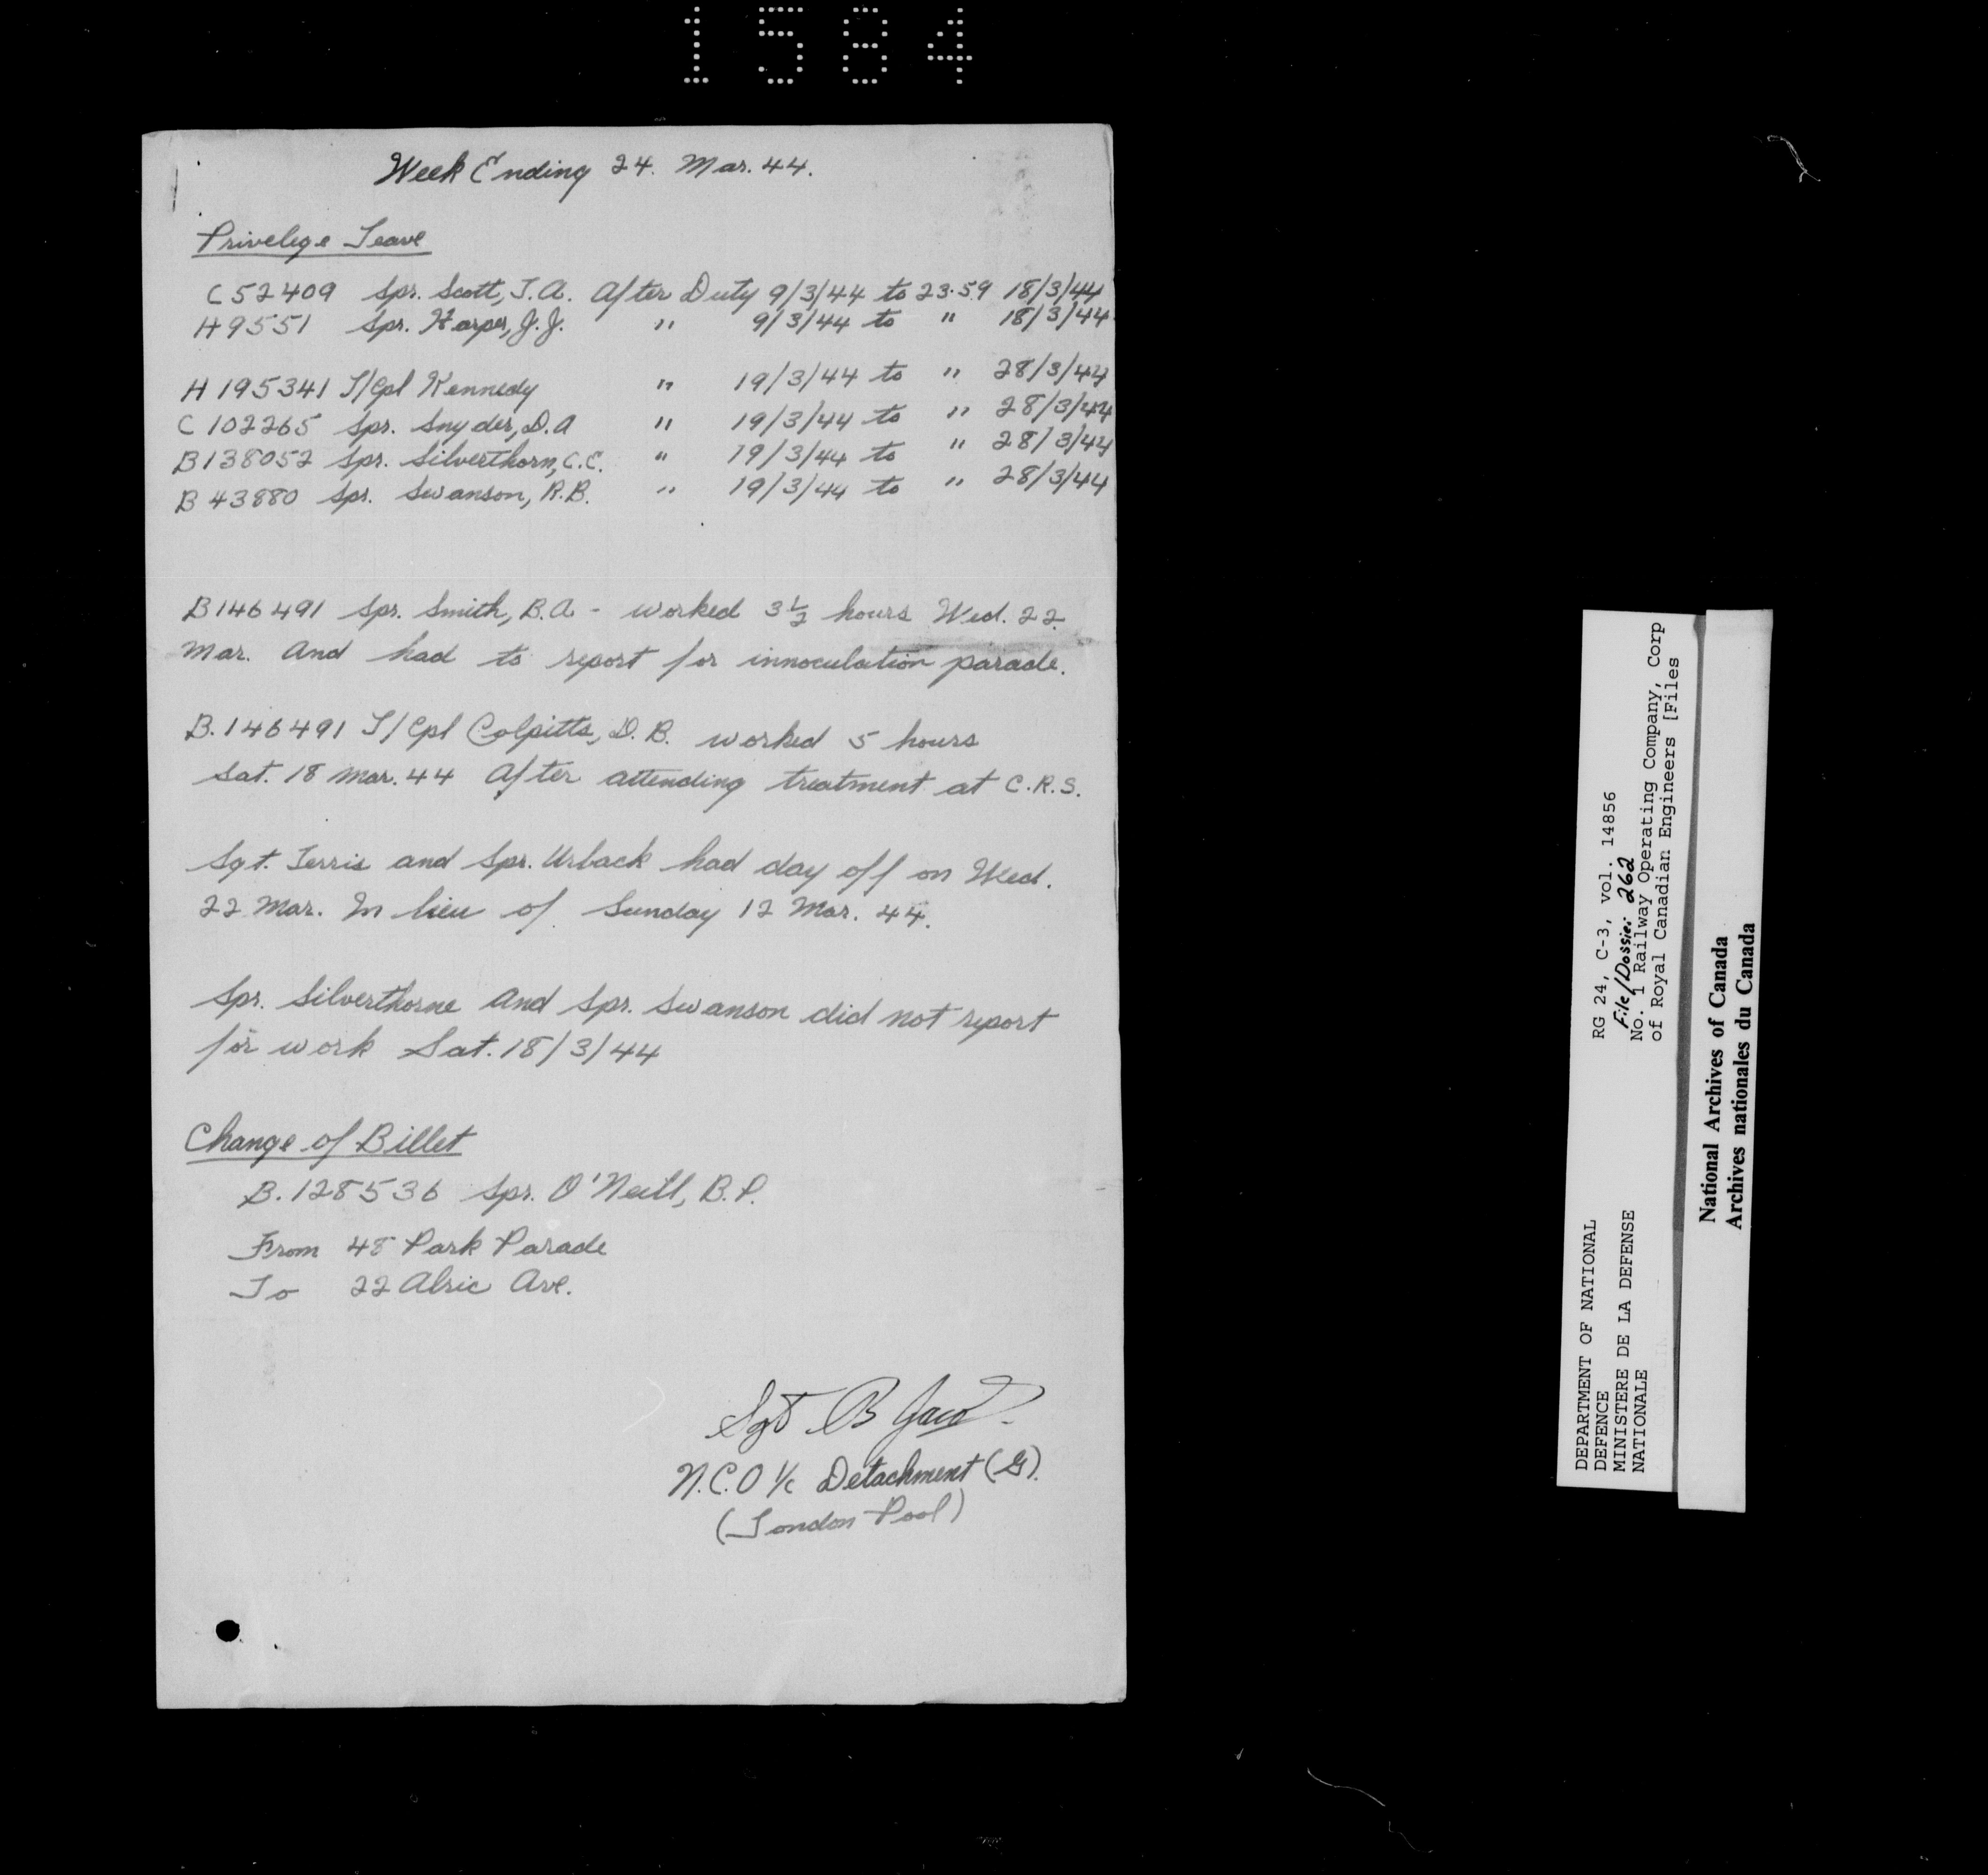 1584
Week Ending 24. Mar. 44.
Privelege Leave
C52409 Spr. Scott, J.A. After Duty 9/3/44 to 23.59 18/3/44
H9551 Spr. Harper, J.J. " 9/3/44 to " 18/3/44
H195341 L/Cpl Kennedy " 19/3/44 to " 28/3/44
C102265 Spr. Snyder, D.A " 19/3/44 to " 28/3/44
B138052 Spr. Silverthorn, C.C. " 19/3/44 to " 28/3/44
B43880 Spr. Swanson, R.B. " 19/3/44 to " 28/3/44
B146491 Spr. Smith, B.A - worked 3½ hours Wed. 22.
Mar. And had to report for innoculation parade.
B.146491 L/Cpl Colpitts, D.B. worked 5 hours
Sat. 18 Mar. 44 After attending treatment at C.R.S.
Sgt. Ferris and Spr. Urback had day off on Wed.
22 Mar. In lieu of Sunday 12 Mar. 44.
Spr. Silverthorne And Spr. Swanson did not report
for work Sat. 18/3/44
Change of Billet
B.128536 Spr. O'Neill, B.P.
From 48 Park Parade
To 22 Alric Ave.
Sgt B
N.C.O I/c Detachment (G).
(London Pool)
DEPARTMENT OF NATIONAL
DEFENCE
MINISTERE DE LA DEFENSE
NATIONALE
RG 24, C-3, vol. 14856
File/Dossier 262
No. 1 Railway Operating Company, Corp
of Royal Canadian Engineers [Files
National Archives of Canada
Archives nationales du Canada